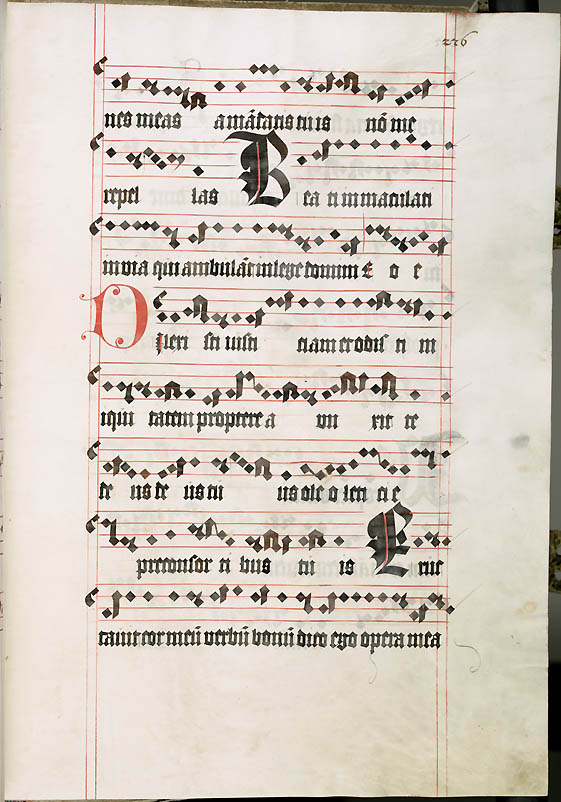 226
nes meas a mādatis tu is nō me
repel las Bea ti immaculati
in via qui ambulāt in lege domini E o e
Dilexi sti iusti ciam et odis ti in
iqui tatem proptere a un xit te
de us de us tu us ole o leti ci e
pre consor ti bus tu is Eruc
tauit cor meū verbū bonū dico ego opera mea